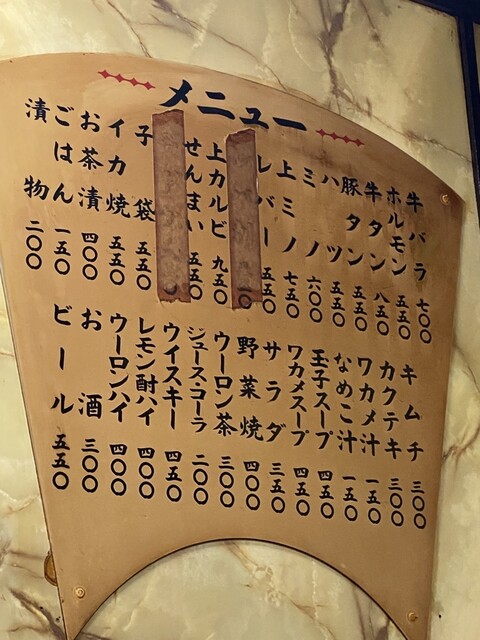 メニュー
牛バラ 七〇〇
ホルモン 五五〇
牛タン 八五〇
豚タン 五五〇
ハツ 五五〇
ミノ 六〇〇
上ミノ 七五〇
レバー 五五〇
上カルビ 九五〇
せんまい 五五〇
子袋 五五〇
イカ焼 五五〇
お茶漬 四〇〇
ごはん 一五〇
漬物 二〇〇
キムチ 三〇〇
カクテキ 三〇〇
ワカメ汁 一五〇
なめこ汁 一五〇
玉子スープ 四五〇
ワカメスープ 四五〇
サラダ 三五〇
野菜焼 四〇〇
ウーロン茶 三〇〇
ジュース・コーラ 二〇〇
ウイスキー 四五〇
レモン酎ハイ 四〇〇
ウーロンハイ 四〇〇
お酒 三〇〇
ビール 五五〇